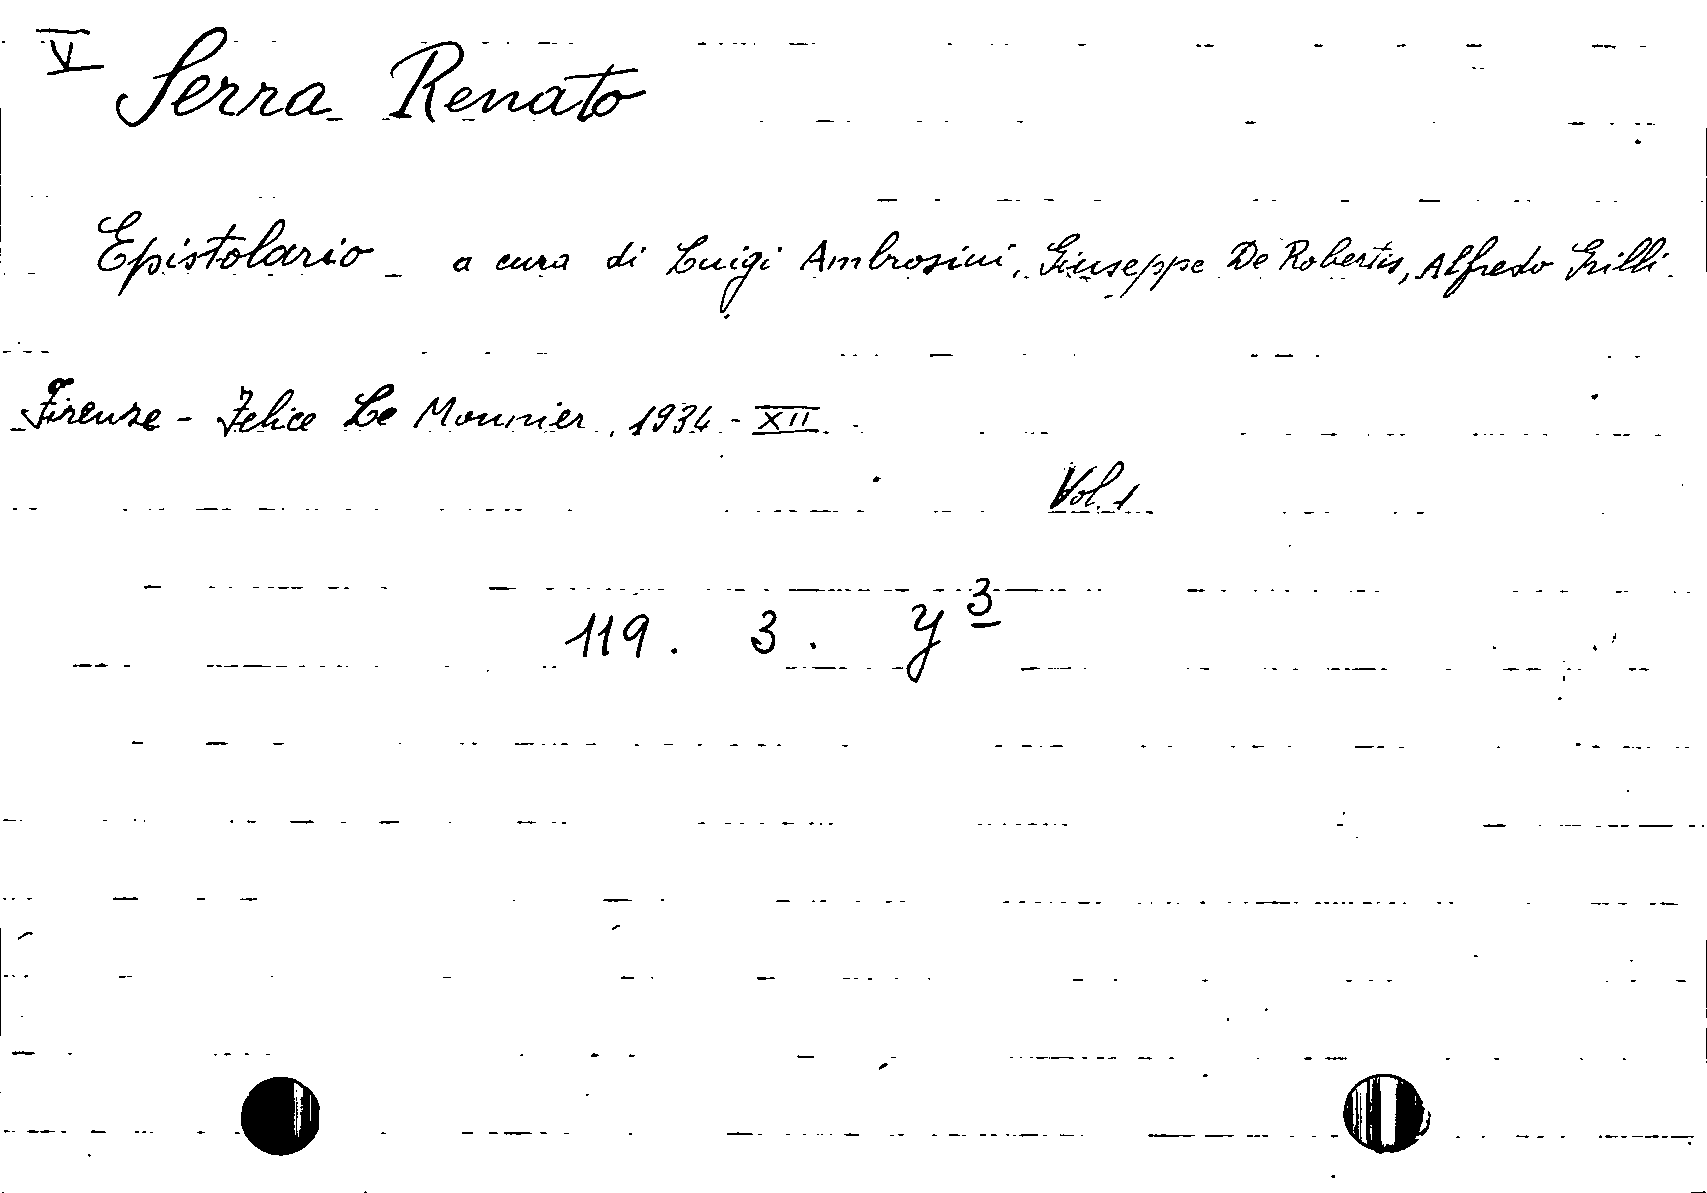 V Serra Renato
Epistolario - a cura di Luigi Ambrosini, Giuseppe De Robertis, Alfredo Grilli.
Firenze - Felice Le Monnier, 1934 - XII
Vol. 1
119. 3. y 3